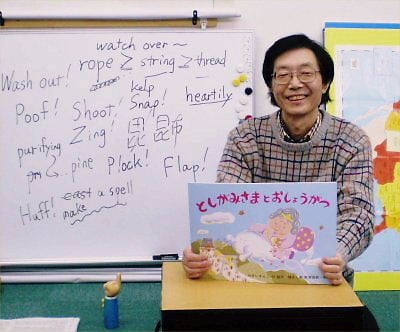 watch over ~
Wash out! rope ≥ string ≥ thread
kelp
Poof! Shoot! Snap! heartily
purifying Zing! 昆布
pine Plock! Flap!
cast a spell
Huff! make
としがみさまとおしょうがつ